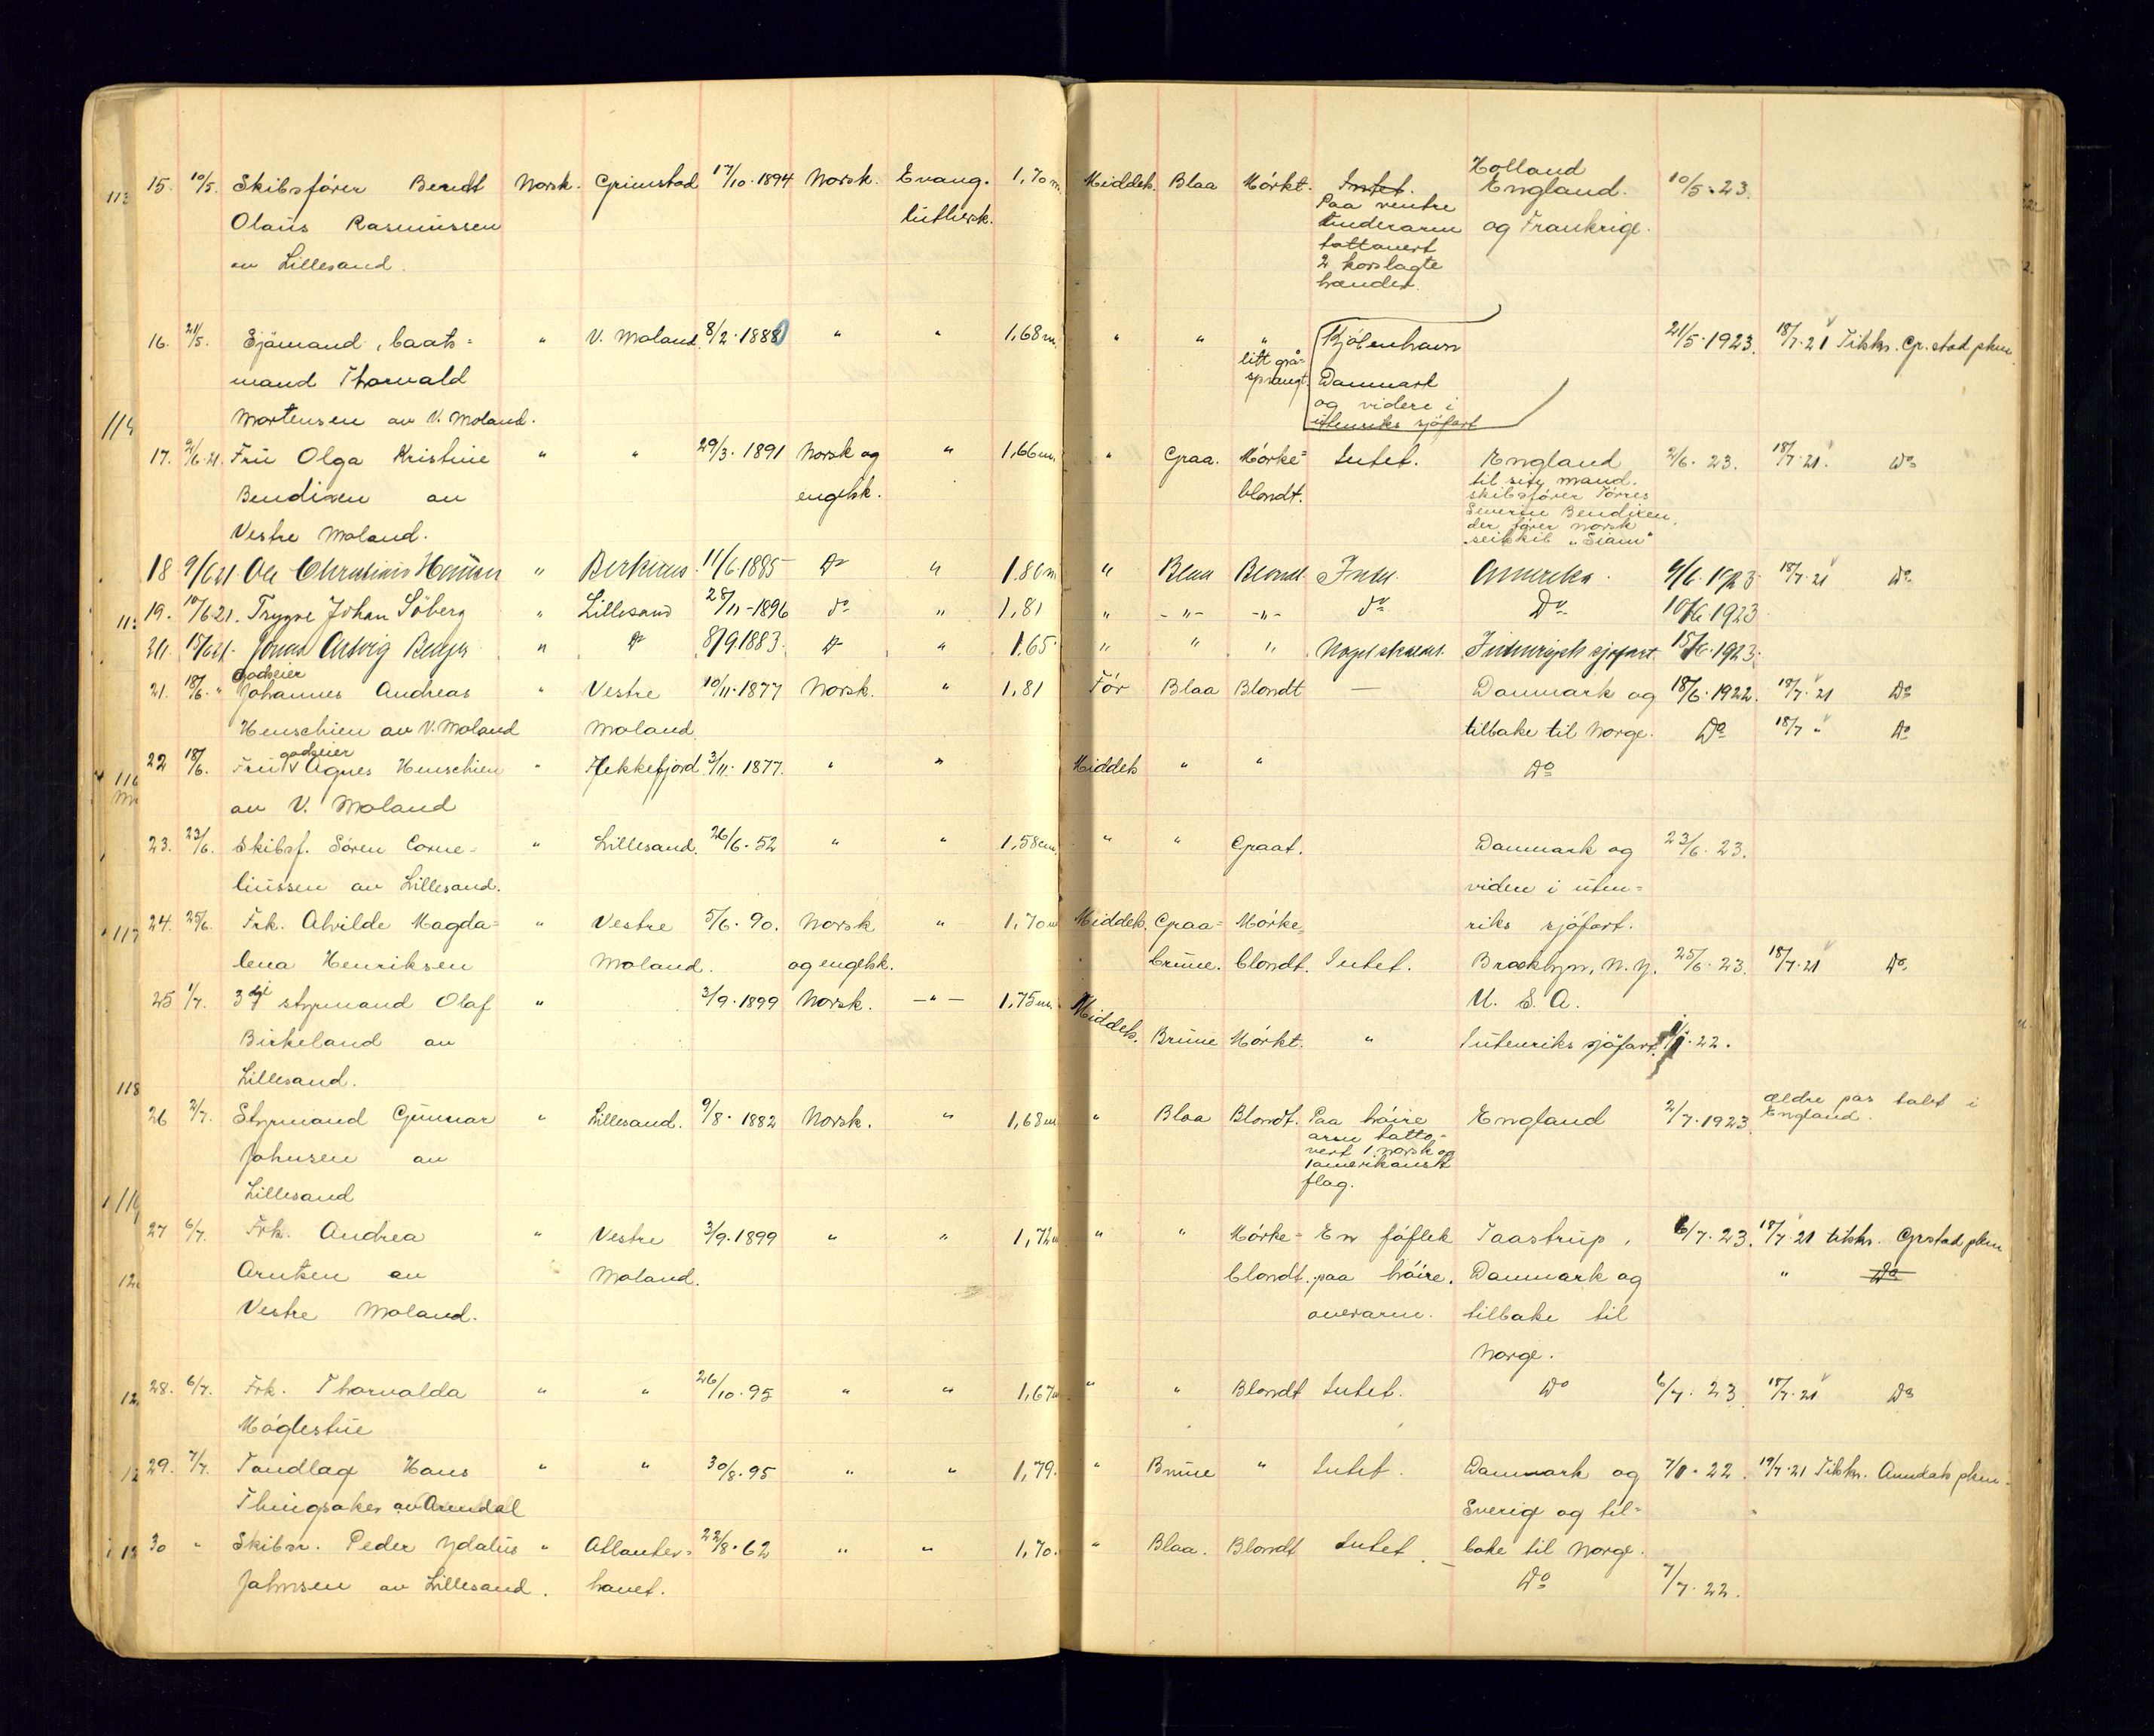 15. 10/5. Skibsfører Berndt Norsk. Grimstad 17/10.1894 Norsk. Evang. 1,70 m Middels. Blaa Mørkt. Intet. Holland England. 10/5.23.
Olaus Rasmussen luthersk. Paa venstre underarm og Frankrige.
av Lillesand. tattovert 2 korslagte hænder.
16. 21/5. Sjømand, baats= " V. Moland. 8/2.1888 " " 1,68 m. " " " Kjøbenhavn 21/5.1923. 18/7.21 Tilskr. Gr.stad pkm
mand Thorvald litt grå= sprængt. Danmark
Mortensen av V. Moland. og videre i utenriks sjøfart
17. 2/6.21. Fru Olga Kristine " " 29/3.1891 Norsk og " 1,66 m. " Graa. Mørke= Intet. England 2/6.23. 18/7.21. Do
Bendixen av engelsk. blondt. til sin mand. skibsfører Tørres
Vestre Moland. Severin Bendixen, der fører norsk seilskib "Siam"
18 9/6 21. Ole Christian Hansen " Birkenes. 11/6 1885 Do " 1.80 m " Blaa Blondt. Intet. Amerika. 9/6.1923 18/7.21 Do
19. 10/6 21. Trygve Johan Söberg " Lillesand 28/11-1896 do " 1,81 " -"- -"- do Do 10/6 1923
20. 15/6 21. " Do 8/9 1883. Do " 1,65 " " " Utenrigsk sjøfart. 15/6.1923.
21. 18/6. " Godseier Johannes Andreas " Vestre 10/11.1877 Norsk. " 1,81 Før Blaa Blondt — Danmark og 18/6.1922. 18/7.21 Do
Henschien av V. Moland Moland tilbake til Norge. Do 18/7 " Do
22 18/6. Fru godseier Agnes Henschien " Flekkefjord 3/11.1877. " " Middels " " Do
av V. Moland
23. 23/6. Skibsf. Sören Corne= " Lillesand. 26/6.52 " " 1,58 cm. " " Graat. Danmark og 23/6.23.
liussen av Lillesand. videre i uten=
24. 25/6. Frk. Alvilde Magda= " Vestre 5/6.90. Norsk " 1,70 m Middels. Graa= Mørke riks sjøfart.
lena Henriksen Moland. og engelsk. brune. blondt. Intet. Brooklyn, N.Y. 25/6.23. 18/7.21 Do
25 1/7. 3dje styrmand Olaf " 3/9.1899 Norsk. -"- 1,75 m. Middels. U.S.A.
Birkeland av Brune Mørkt. " Iutenriks sjøfart. 22.
Lillesand.
26 2/7. Styrmand Gunnar " Lillesand. 9/8.1882 Norsk. " 1,68 m " Blaa Blondt. Paa høire England 2/7.1923. Ældre pas tabt i England.
Johnsen av arm tatto= vert 1 norsk og
Lillesand 1 amerikansk flag.
27 6/7. Frk. Andrea " Vestre 3/9.1899 " " 1,72 m " " Mørke= En føflek Taastrup, 6/7.23. 18/7.21 tilskr. Grstad pkm
Arntsen av Moland. blondt. paa høire. Danmark og " Do
Vestre Moland. overarm. tilbake til
Norge.
28. 6/7. Frk. Thorvalda " " 26/10.95 " " 1,67 m " " Blondt Intet. Do 6/7.23. 18/7.21 Do
Møglestue
29. 7/7. Tandlæge Hans " " 30/8.95 " " 1,79. " Brune " Intet. Danmark og 22. 19/7.21 Tilskr. Arendals pkm.
Thingsaker av Arendal Sverig og til=
30 " Skibsr. Peder Ydalus " Atlanter= 22/8.62 " " 1,70. " Blaa. Blondt Intet bake til Norge.
Johnsen av Lillesand. havet. Do 7/7.22.